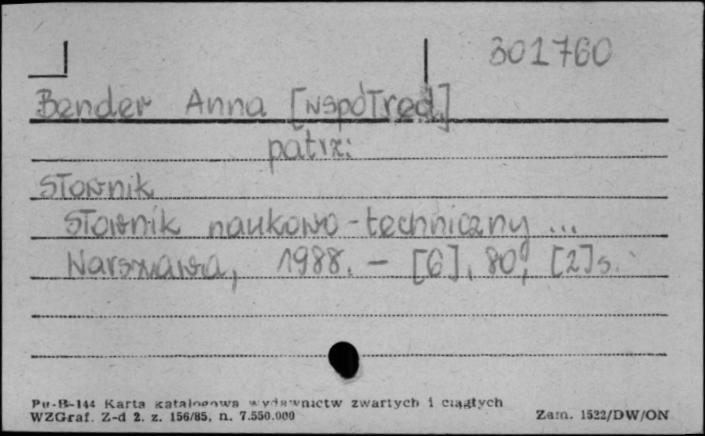 301760
Bender Anna [współred.]
patrz:
Słownik
Słownik naukowo-techniczny ...
Warszawa, 1988. – [6], 80, [2] s.
Pu-B-144 Karta katalogowa wydawnictw zwartych i ciągłych
WZGraf. Z-d 2. z. 156/85, n. 7.550.000
Zam. 1522/DW/ON